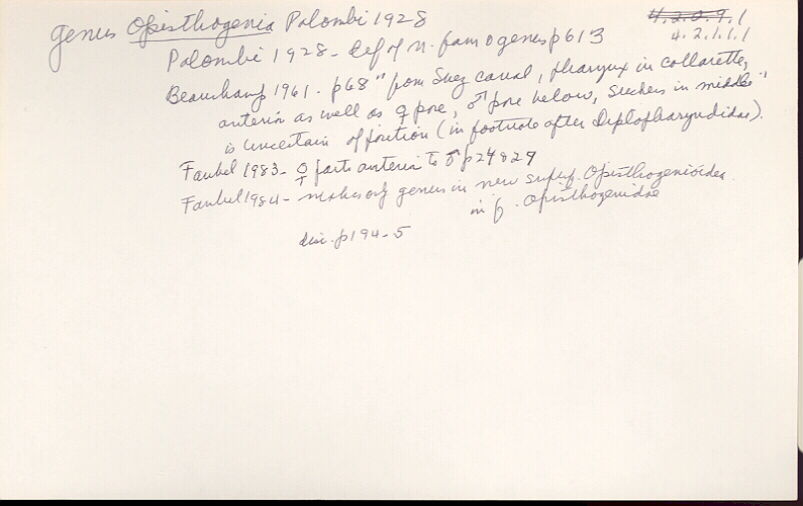 genus Opisthogenia Palombi 1928
4.2.0.9.1
4.2.1.1.1
Palombi 1928 - def of n. fam & genus p613
Beauchamp 1961. p68 "from Suez canal, pharynx in collarette,
anterior as well as ♀ pore, ♂ pore below, suckers in middle"
is uncertain of position (in footnote after Diplopharyndidae).
Faubel 1983 - ♀ parts anterior to ♂ p24 & 29
Faubel 1984 - makes only genus in new superf. Opisthogenioidea
in f. Opisthogenidae
disc. p194-5